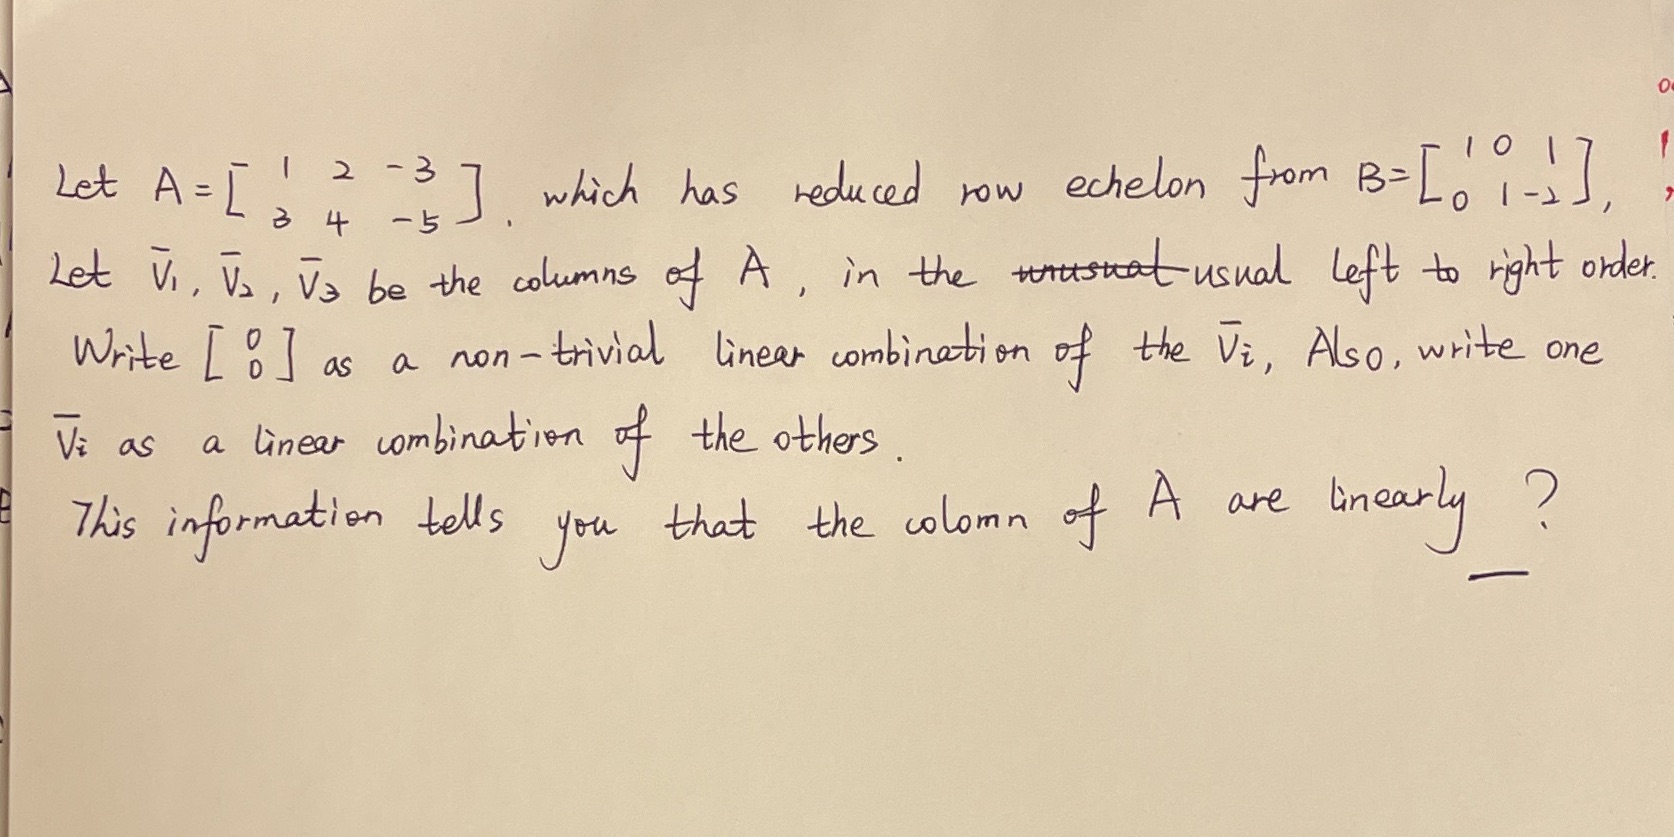 Let A = [ 1 2 -3 ; 3 4 -5 ]. which has reduced row echelon from B = [ 1 0 1 ; 0 1 -2 ],
Let V̄₁, V̄₂, V̄₃ be the columns of A, in the ~~unusual~~ usual left to right order.
Write [ 0 ; 0 ] as a non-trivial linear combination of the V̄i, Also, write one
V̄i as a linear combination of the others.
This information tells you that the colomn of A are linearly __ ?